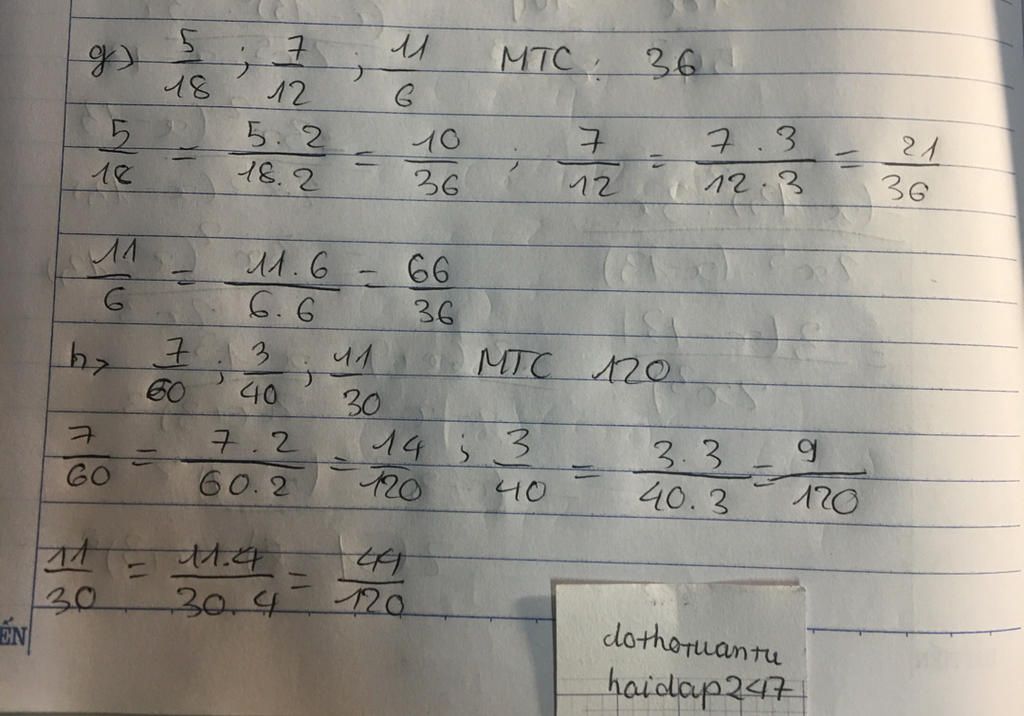 g) 5/18 ; 7/12 ; 11/6 MTC : 36
5/18 = 5.2/18.2 = 10/36 ; 7/12 = 7.3/12.3 = 21/36
11/6 = 11.6/6.6 = 66/36
h) 7/60 ; 3/40 ; 11/30 MTC 120
7/60 = 7.2/60.2 = 14/120 ; 3/40 = 3.3/40.3 = 9/120
11/30 = 11.4/30.4 = 44/120
ẾN
dothotuantu
haidap247